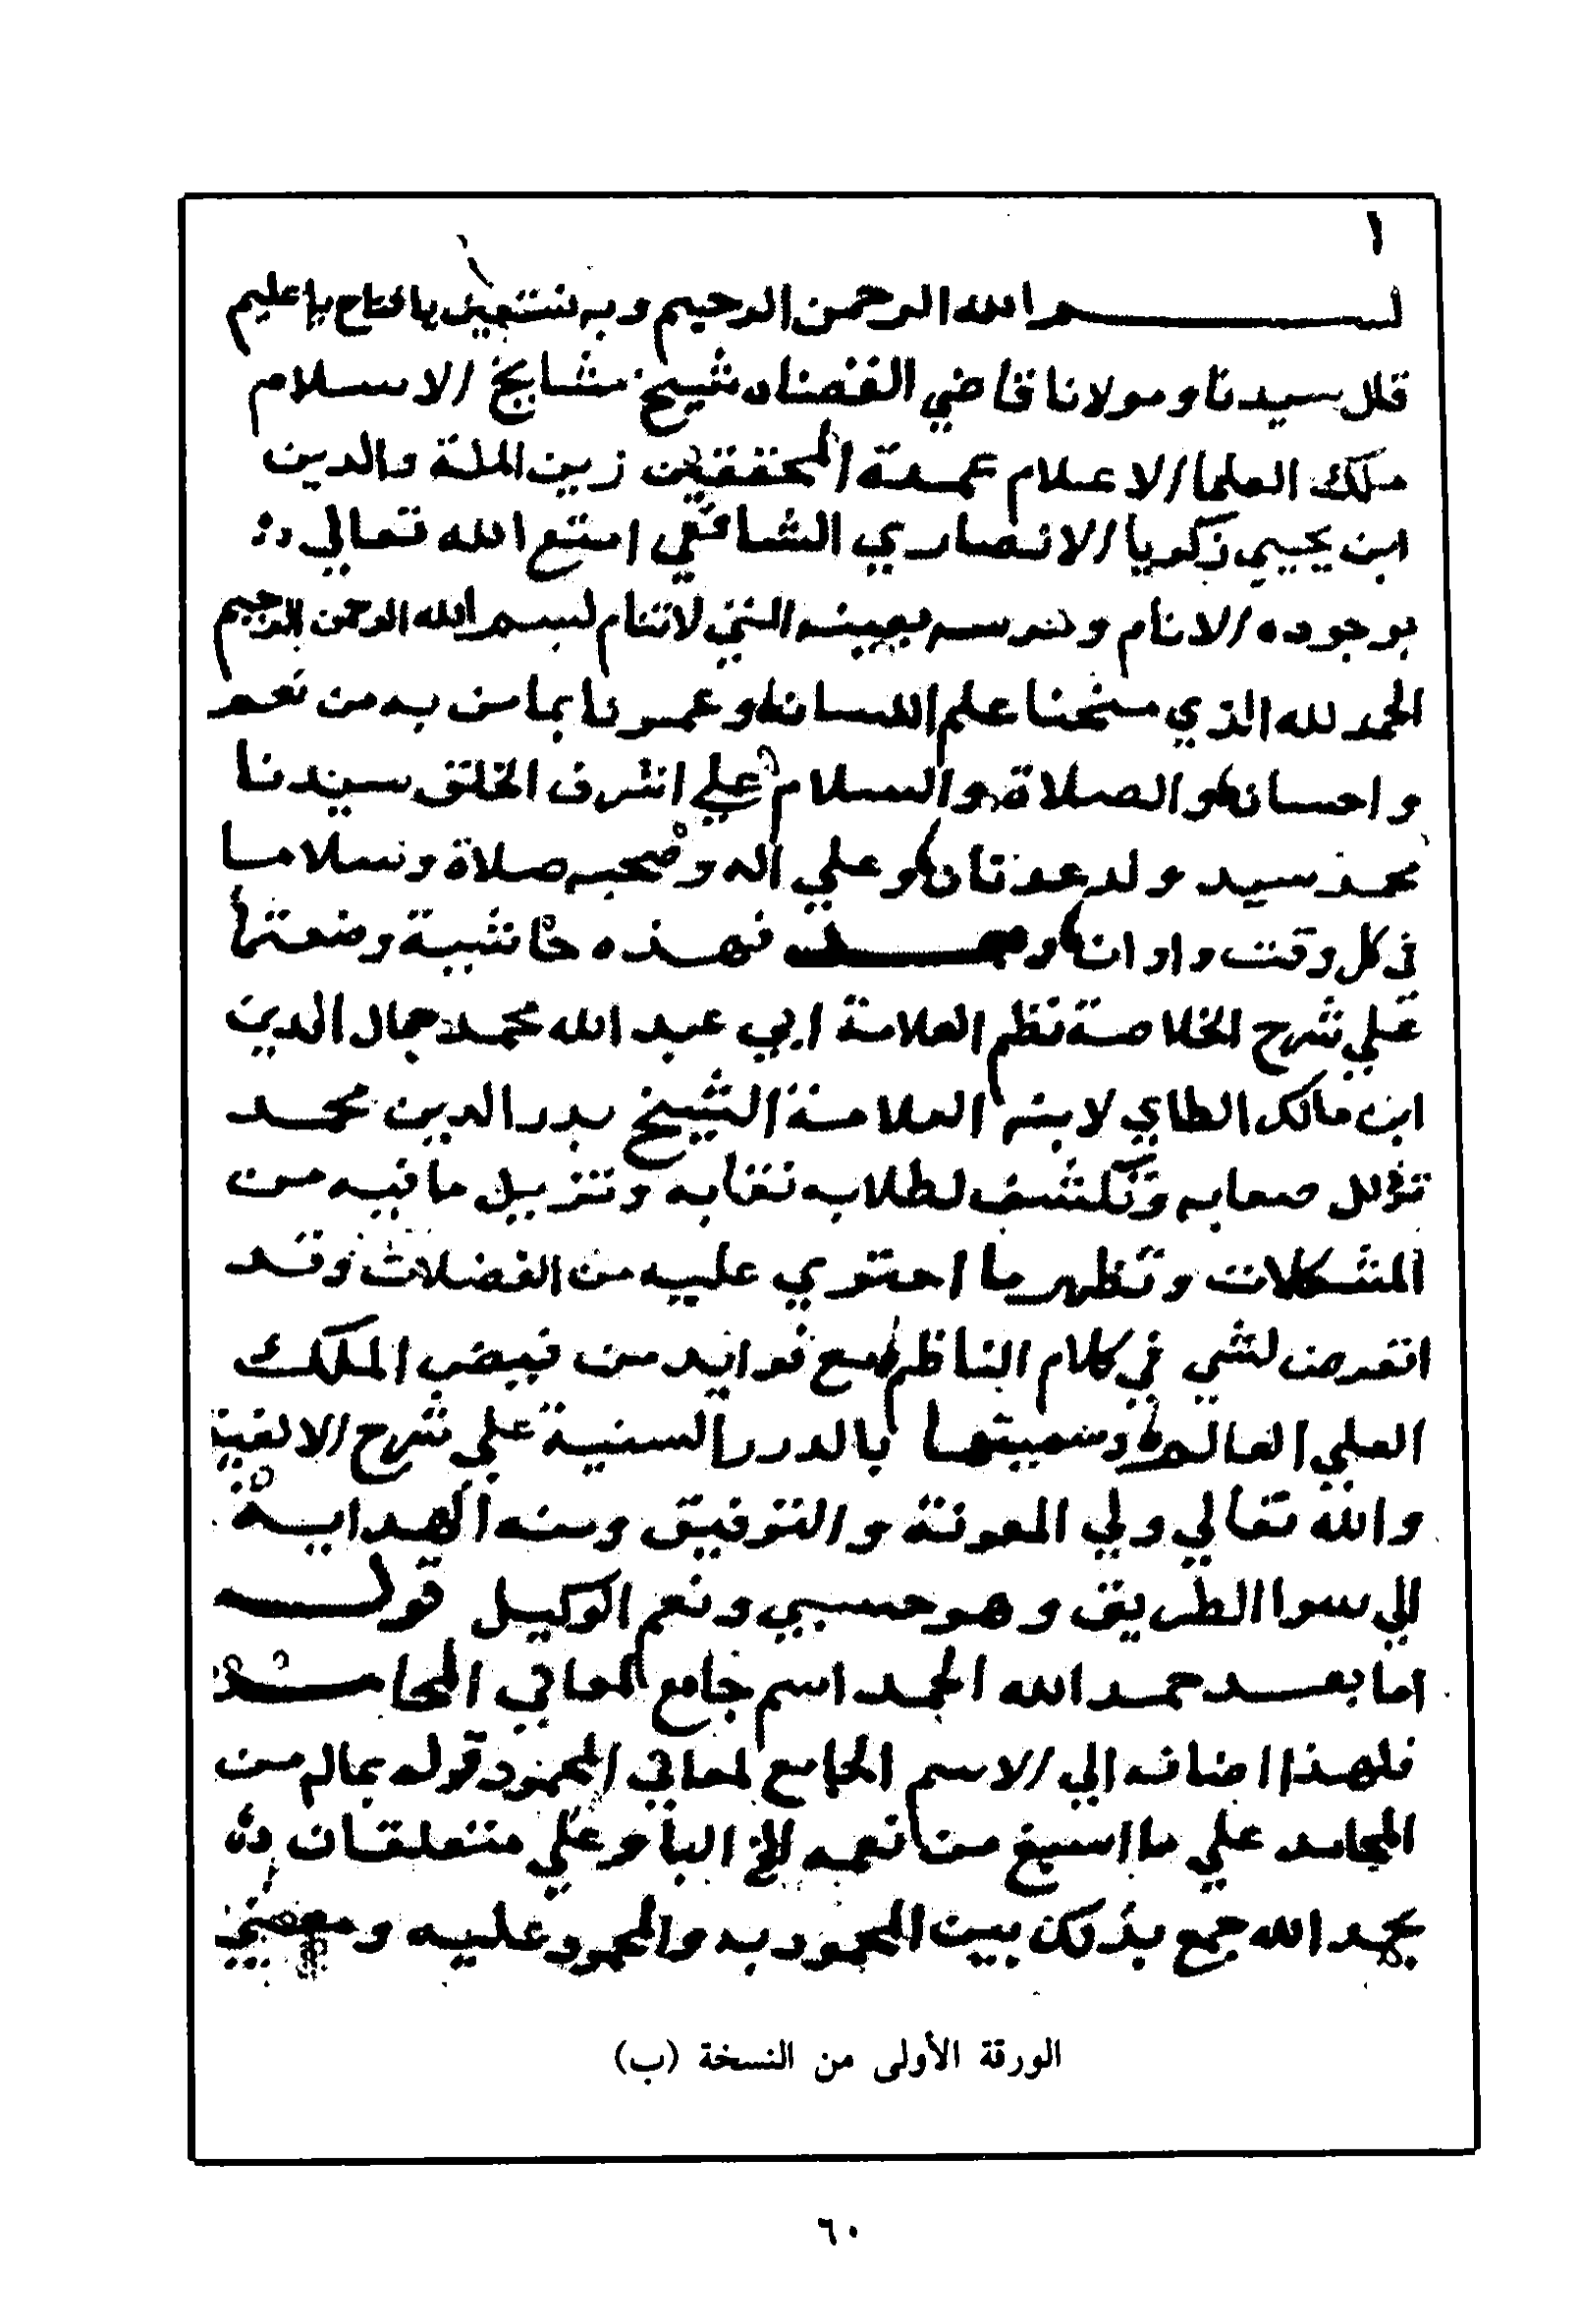 ١
بسم الله الرحمن الرحيم وبه نستعين يا فتاح يا عليم
قال سيدنا ومولانا قاضي القضاه شيخ مشايخ الاسلام
ملك العلما الاعلام عمدة المحققين زين الملة والدين
ابن يحيي زكريا الانصاري الشافعي امتع الله تعالي
بوجوده الانام وحرسه بعينه التي لا تنام بسم الله الرحمن الرحيم
الحمد لله الذي منحنا علم اللسان وغمرنا بما من به من نعم
واحسان والصلاة والسلام علي اشرف الخلق سيدنا
محمد سيد ولد عدنان وعلي اله وصحبه صلاة وسلاما
في كل وقت واوان وبعد فهذه حاشية وضعتها
علي شرح الخلاصة نظم العلامة ابي عبد الله محمد جمال الدين
ابن مالك الطاي لابنه العلامة الشيخ بدر الدين محمد
تذلل صعابه وتكشف لطلابه نقابه وتزيل ما فيه من
المشكلات وتظهر ما احتوي عليه من الفضلات وقد
اتعرض لشي في كلام الناظم مع فوايد من فيض الملك
العلي العالم وسميتها بالدرر السنية علي شرح الالفية
والله تعالي ولي المعونة والتوفيق ومنه الهداية
الي سوا الطريق وهو حسبي ونعم الوكيل قوله
اما بعد حمد الله الحمد اسم جامع لمعاني المحامد
فلهذا اضافه الي الاسم الجامع لمعاني المحمود قوله بماله من
المحامد علي ما اسبغ من نعمه الخ البا وعلي متعلقان
بحمد الله جمع بذلك بين المحمود به والمحمود عليه ومعني
الورقة الأولى من النسخة (ب)
٦٠